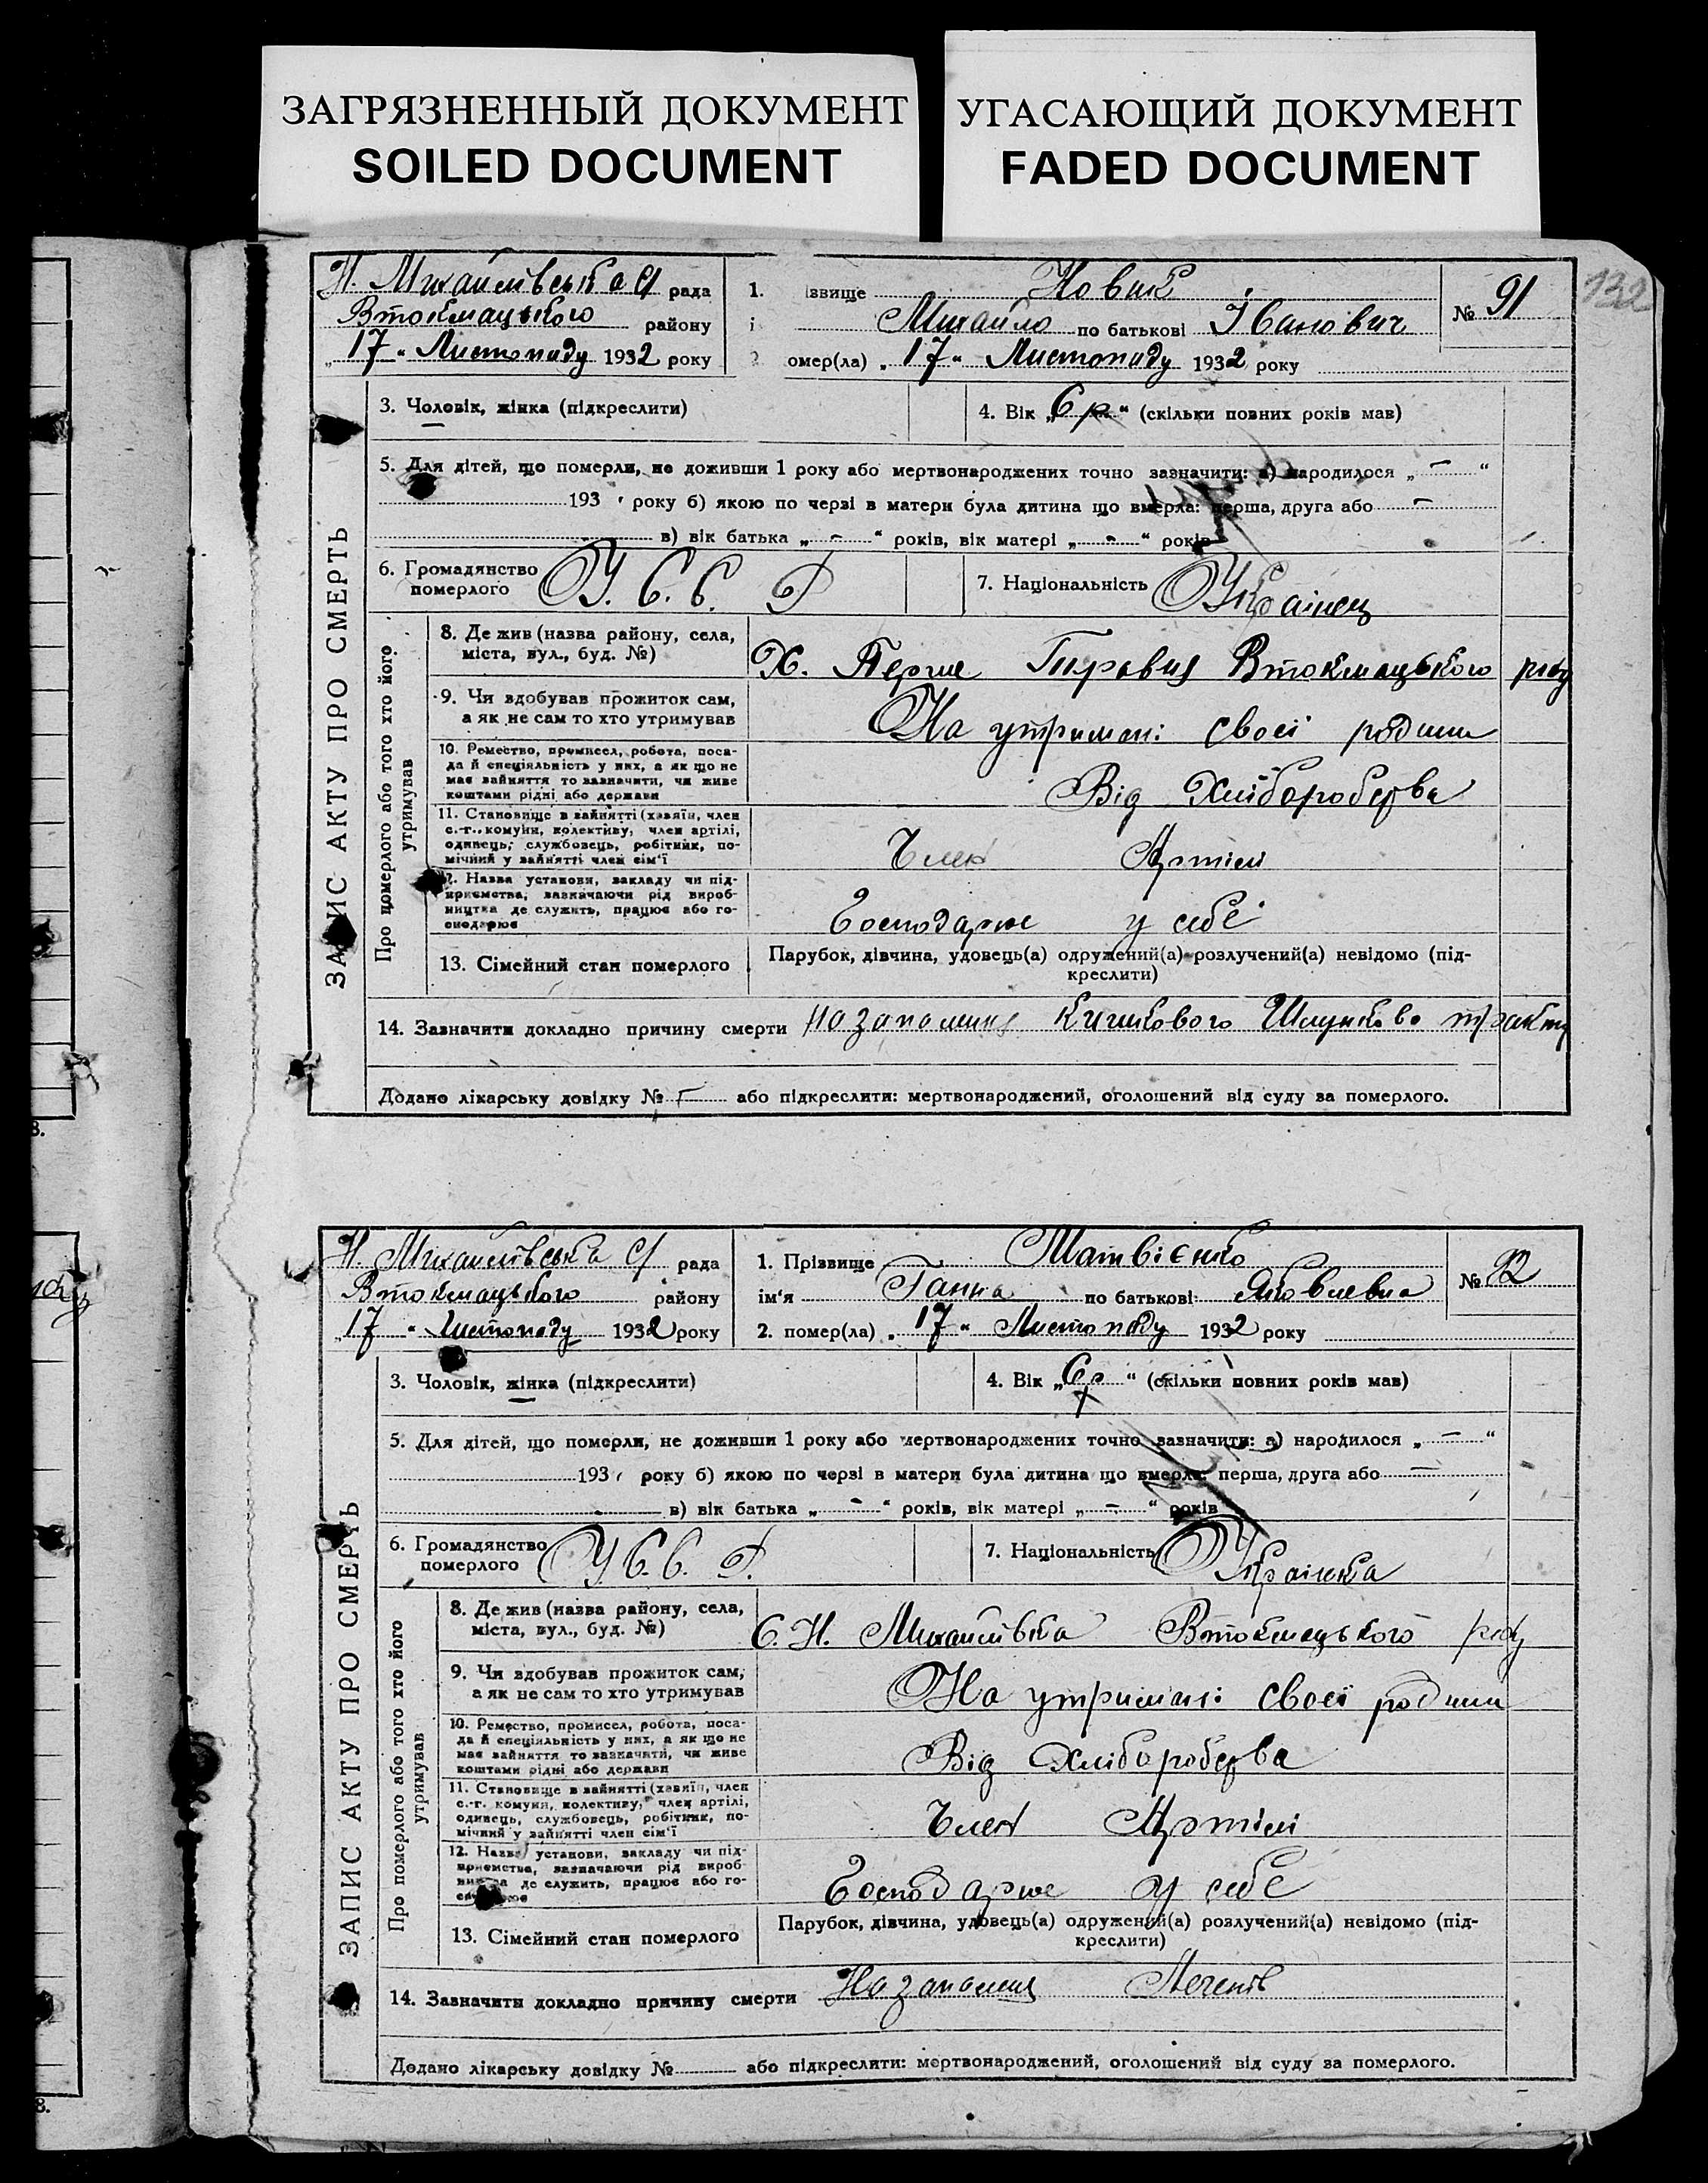 ЗАГРЯЗНЕННЫЙ ДОКУМЕНТ
SOILED DOCUMENT
УГАСАЮЩИЙ ДОКУМЕНТ
FADED DOCUMENT
132
Н. Михайлівська с/ рада
Втокмацького району
„17“ Листопаду 1932 року
1. ізвище Новик
і Михайло по батькові Іванович
2 омер(ла) „17“ Листопаду 1932 року
№ 91
ЗАПИС АКТУ ПРО СМЕРТЬ
3. Чоловік, жінка (підкреслити)
4. Вік „6 р“ (скільки повних років мав)
5. Для дітей, що померли, не доживши 1 року або мертвонароджених точно зазначити: а) народилося „—“
193 року б) якою по черзі в матери була дитина що вмерла: перша, друга або —
в) вік батька „-“ років, вік матері „-“ років
6. Громадянство
померлого У. С. С. Р
7. Національність Українец
Про померлого або того хто його
утримував
8. Де жив (назва району, села,
міста, вул., буд. №)
Х. Перше Втокмацького р-ну
9. Чи здобував прожиток сам,
а як не сам то хто утримував
На утримані своєї родини
10. Ремество, промисел, робота, поса-
да й спеціяльність у них, а як що не
має зайняття то зазначити, чи живе
коштами рідні або держави
Від Хліборобства
11. Становище в зайнятті (хазяїн, член
с.-г. комуни, колективу, член артілі,
одинець, службовець, робітник, по-
мічний у зайнятті член сім'ї
Член Артілі
12. Назва установи, закладу чи під-
приємства, зазначаючи рід вироб-
ництва де служить, працює або го-
сподарює
Господарює у себе
13. Сімейний стан померлого
Парубок, дівчина, удовець(а) одружений(а) розлучений(а) невідомо (під-
креслити)
14. Зазначити докладно причину смерти На запалення Кишкового Шлунково тракту
Додано лікарську довідку № — або підкреслити: мертвонароджений, оголошений від суду за померлого.
Н. Михайлівська с/ рада
Втокмацького району
„17“ Листопаду 1932 року
1. Прізвище Матвієнко
ім'я Ганна по батькові Яковлевна
2. помер(ла) „17“ Листопаду 1932 року
№ 92
ЗАПИС АКТУ ПРО СМЕРТЬ
3. Чоловік, жінка (підкреслити)
4. Вік „6 р“ (скільки повних років мав)
5. Для дітей, що померли, не доживши 1 року або мертвонароджених точно зазначити: а) народилося „—“
193 року б) якою по черзі в матери була дитина що вмерла: перша, друга або —
в) вік батька „-“ років, вік матері „-“ років
6. Громадянство
померлого У. С. С. Р.
7. Національність Українка
Про померлого або того хто його
утримував
8. Де жив (назва району, села,
міста, вул., буд. №)
С. Н. Михайлівка Втокмацького р-ну
9. Чи здобував прожиток сам,
а як не сам то хто утримував
На утримані своєї родини
10. Ремество, промисел, робота, поса-
да й спеціяльність у них, а як що не
має зайняття то зазначити, чи живе
коштами рідні або держави
Від Хліборобства
11. Становище в зайнятті (хазяїн, член
с.-г. комуни, колективу, член артілі,
одинець, службовець, робітник, по-
мічний у зайнятті член сім'ї
Член Артілі
12. Назва установи, закладу чи під-
приємства, зазначаючи рід вироб-
ництва де служить, працює або го-
сподарює
Господарює у себе
13. Сімейний стан померлого
Парубок, дівчина, удовець(а) одружений(а) розлучений(а) невідомо (під-
креслити)
14. Зазначити докладно причину смерти На запалення Легенів
Додано лікарську довідку № або підкреслити: мертвонароджений, оголошений від суду за померлого.